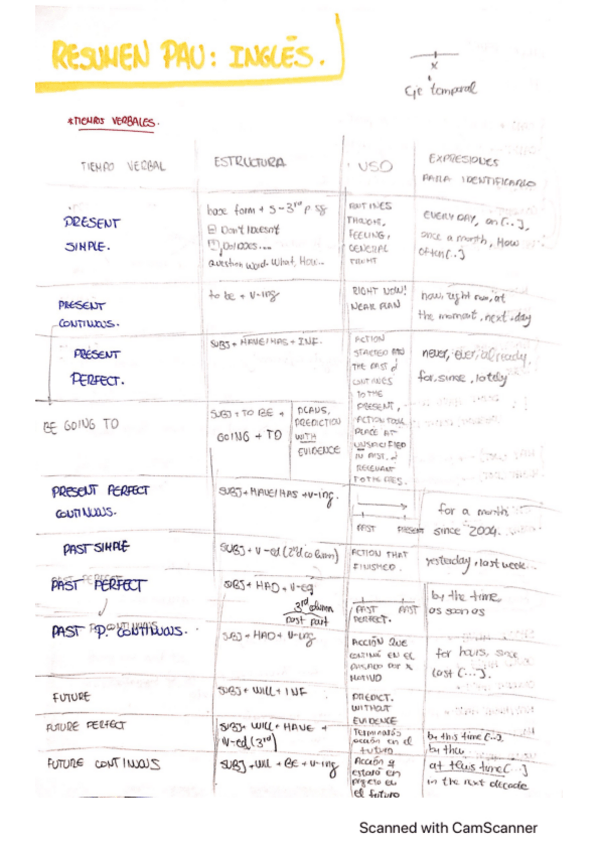 RESUMEN PAU: INGLÉS.
x
Eje temporal
*TIEMPOS VERBALES.
TIEMPO VERBAL
ESTRUCTURA
USO
EXPRESIONES
PARA IDENTIFICARLO
PRESENT
SIMPLE.
base form + s - 3rd p sg
Don't/doesn't
Do/does...
question word. What, How..
ROUTINES
THOUGHT,
FEELING,
GENERAL
TRUTH
EVERY DAY, on (..),
once a month, How
often (..)
PRESENT
CONTINOUS.
to be + v-ing
RIGHT NOW!
NEAR PLAN
now, right now, at
the moment, next day
PRESENT
PERFECT.
SUBJ + HAVE/HAS + INF.
ACTION
STARTED
THE PAST &
CONTINUES
TO THE
PRESENT,
ACTION TOOK
PLACE AT
UNSPECIFIED
IN PAST, &
RELEVANT
never, ever, already,
for, since, lately
BE GOING TO
SUBJ + TO BE +
GOING + TO
PLANS,
PREDICTION
WITH
EVIDENCE
PRESENT PERFECT
CONTINOUS.
SUBJ + HAVE/HAS + V-ing.
PAST PRESENT
for a month
since 2004.
PAST SIMPLE
SUBJ + V-ed (2nd column)
ACTION THAT
FINISHED.
yesterday, last week..
PAST PERFECT
SUBJ + HAD + V-
3rd column
past part
PAST PAST
PERFECT.
by the time
as soon as
PAST P. CONTINUOUS.
SUBJ + HAD + V-ing
ACCIÓN QUE
EN EL
PASADO POR X
MOTIVO
for hours, since
last (...).
FUTURE
SUBJ + WILL + INF
PREDICT.
WITHOUT
EVIDENCE
FUTURE PERFECT
SUBJ + WILL + HAVE +
V-ed (3rd)
acción en el
futuro
by this time (..)
by then
FUTURE CONTINOUS
SUBJ + WILL + BE + V-ing
Acción q
estará en
el futuro
at this time (..)
in the next decade
Scanned with CamScanner